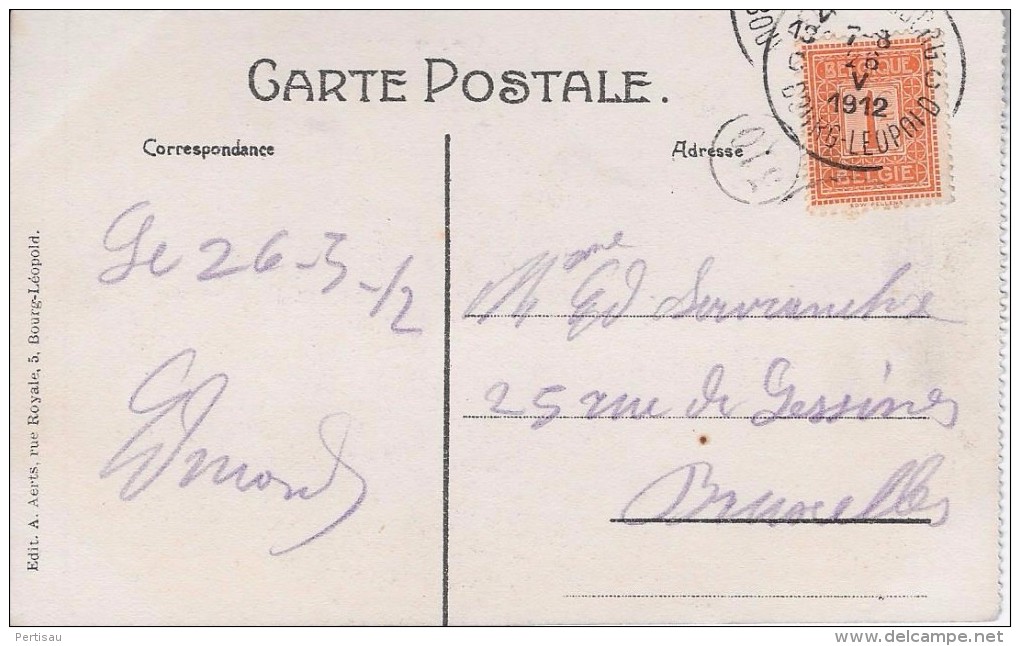 CARTE POSTALE.
Correspondance
Adresse
BELGIQUE
1
BELGIE
7-8
26
V
1912
BOURG-LEOPOLD
Le 26-5-12
Edmond
Mme Ed Servranckx
25 rue de Lessines
Bruxelles
Edit. A. Aerts, rue Royale, 5, Bourg-Léopold.
Pertisau
delcampe.net